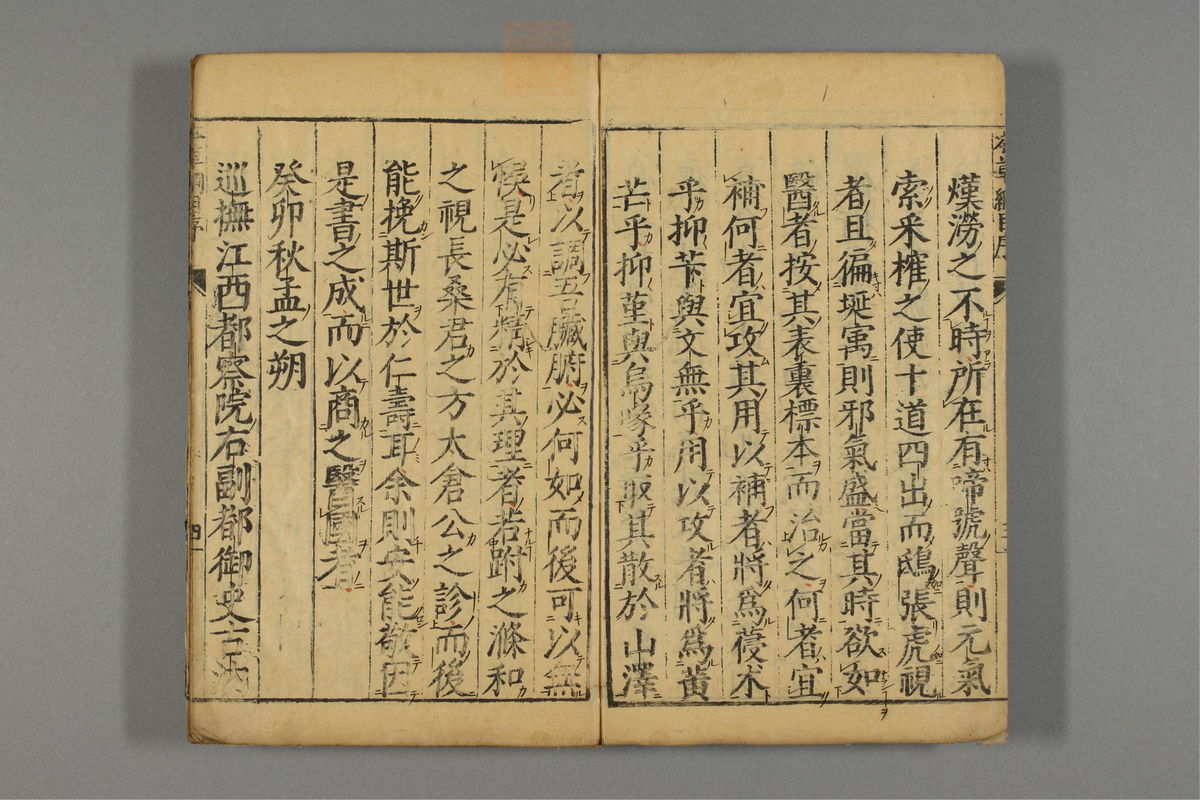 熯澇之不時所在有啼號聲則元氣
索采榷之使十道四出而鴟張虎視
者且徧埏寓則邪氣盛當其時欲如
醫者按其表裏標本而治之何者宜
補何者宜攻其用以補者將爲葠朮
乎抑苄與文無乎用以攻者將爲黃
芒乎抑堇與烏喙乎取其散於山澤
者以調五臟腑必何如而後可以無
誤是必有精於其理者若跗之滌和
之視長桑君之方太倉公之診而後
能挽斯世於仁壽耳余則安能敬因
是書之成而以商之醫國者
癸卯秋孟之朔
巡撫江西都察院右副都御史古